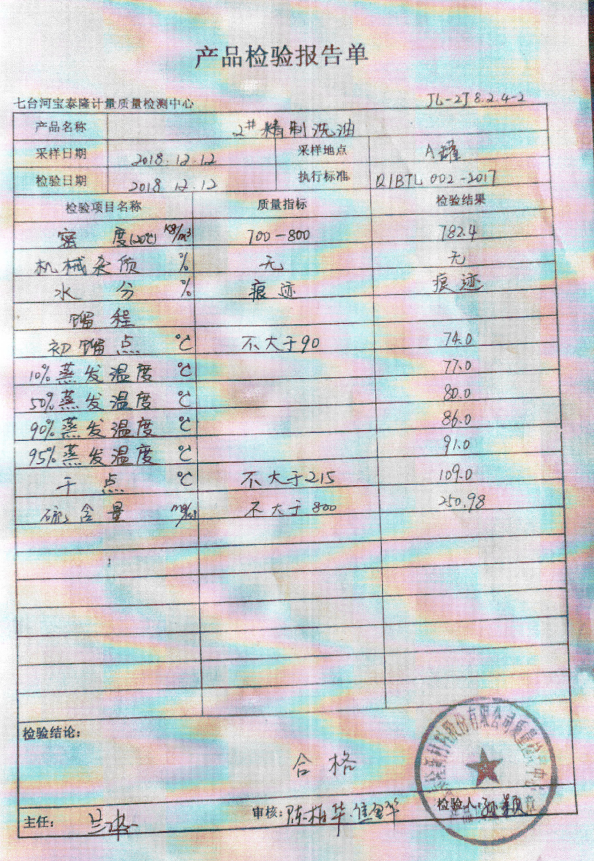 产品检验报告单
七台河宝泰隆计量质量检测中心 JL-ZJ8.2.4-2
产品名称 2#精制洗油
采样日期 2018.12.12 采样地点 A罐
检验日期 2018.12.12 执行标准 Q/BTL 002-2017
检验项目名称 质量指标 检验结果
密度(20℃) kg/m³ 700-800 782.4
机械杂质 % 无 无
水分 % 痕迹 痕迹
馏程
初馏点 ℃ 不大于90 74.0
10%蒸发温度 ℃ 77.0
50%蒸发温度 ℃ 80.0
90%蒸发温度 ℃ 86.0
95%蒸发温度 ℃ 91.0
干点 ℃ 不大于215 109.0
硫含量 不大于800 250.98
检验结论:
合格
主任: 审核: 陈柏华 检验人: 孙颖